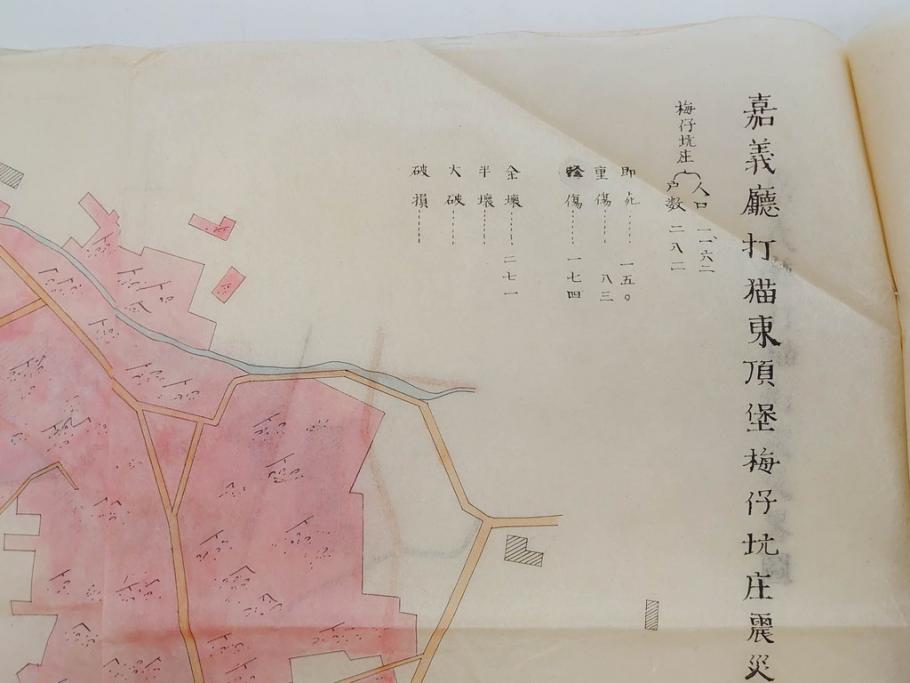 嘉義廳打猫東頂堡梅仔坑庄震災
梅仔坑庄
人口 一、一六二
戸数 二八二
即死……一五〇
重傷……八三
軽傷……一七四
全壊……二七一
半壊……
大破……
破損……